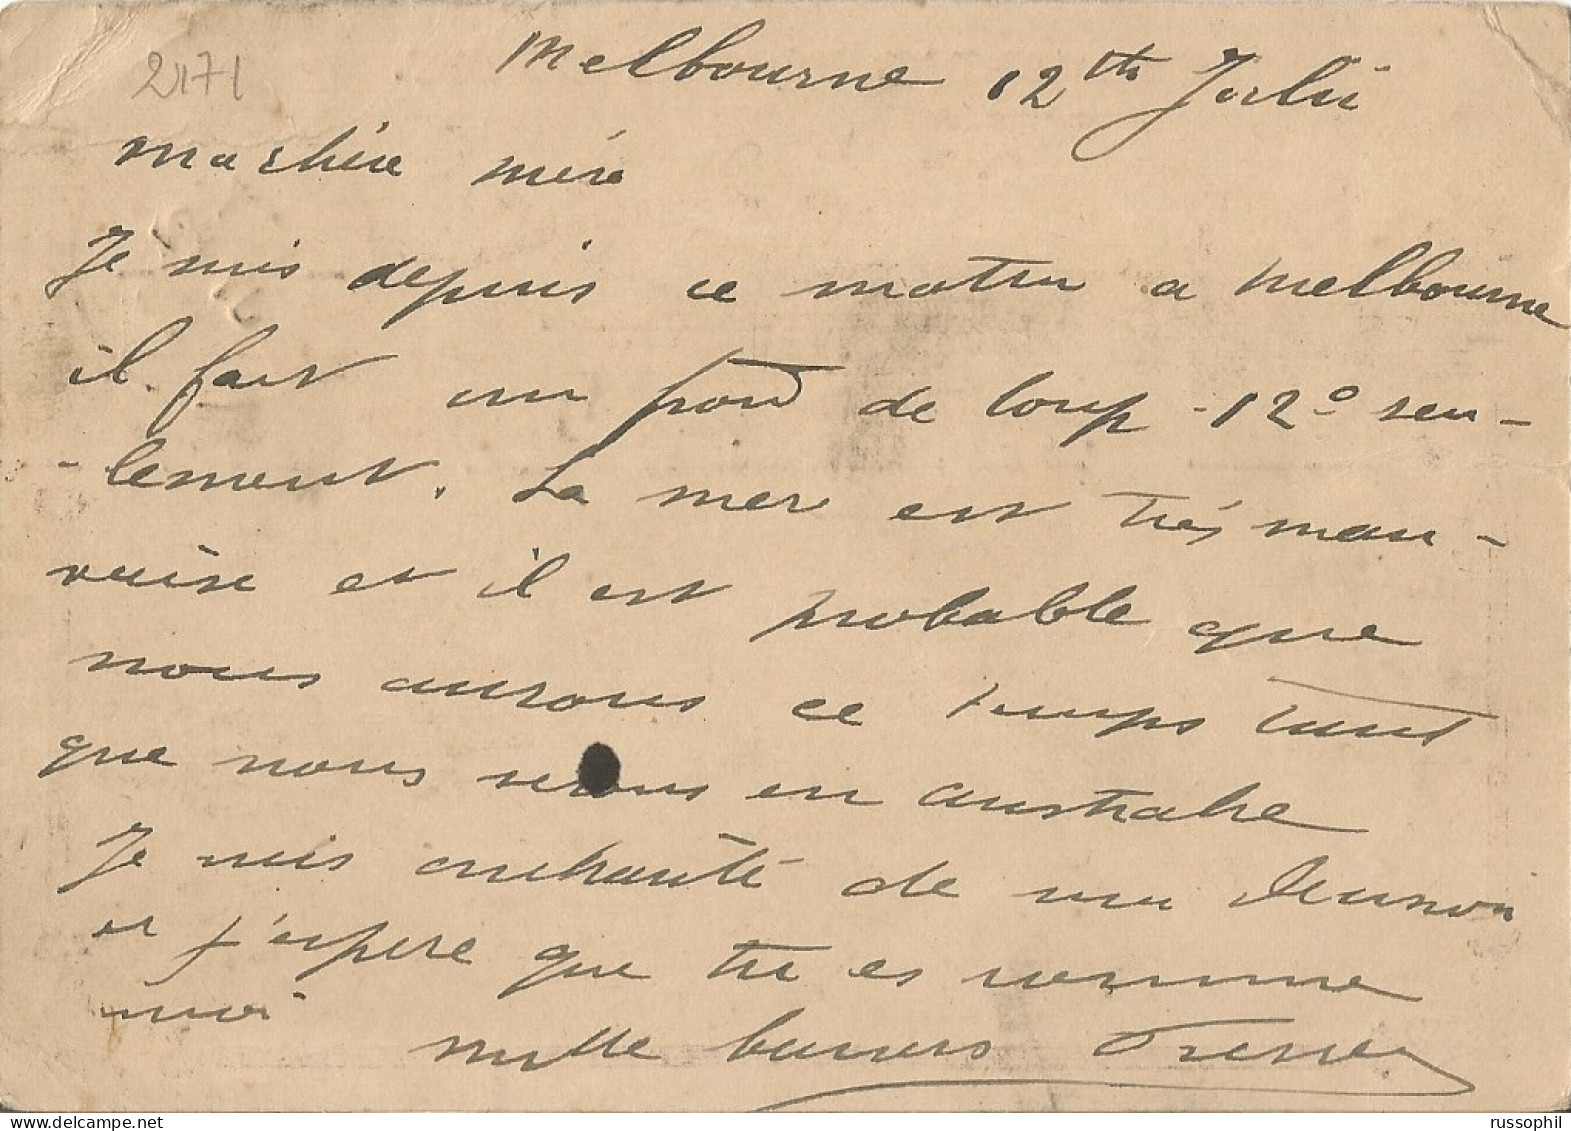 2171
Melbourne 12th Julii
ma chère mère
Je suis depuis ce matin a Melbourne
il fait un froid de loup - 12° seu-
-lement. La mer est très mau-
vaise et il est probable que
nous aurons ce temps tant
que nous serons en australie
Je suis enchanté de ma
et j'espere que tu es comme
moi
mille baisers
www.russophil.com